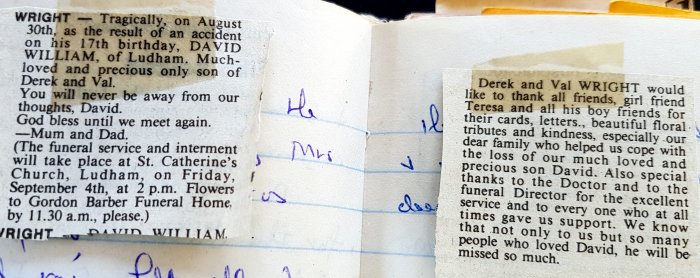 WRIGHT — Tragically, on August
30th, as the result of an accident
on his 17th birthday, DAVID
WILLIAM, of Ludham. Much-
loved and precious only son of
Derek and Val.
You will never be away from our
thoughts, David.
God bless until we meet again.
—Mum and Dad.
(The funeral service and interment
will take place at St. Catherine's
Church, Ludham, on Friday,
September 4th, at 2 p.m. Flowers
to Gordon Barber Funeral Home,
by 11.30 a.m., please.)
WRIGHT — DAVID WILLIAM.
He
Mrs
Derek and Val WRIGHT would
like to thank all friends, girl friend
Teresa and all his boy friends for
their cards, letters., beautiful floral
tributes and kindness, especially our
dear family who helped us cope with
the loss of our much loved and
precious son David. Also special
thanks to the Doctor and to the
funeral Director for the excellent
service and to every one who at all
times gave us support. We know
that not only to us but so many
people who loved David, he will be
missed so much.